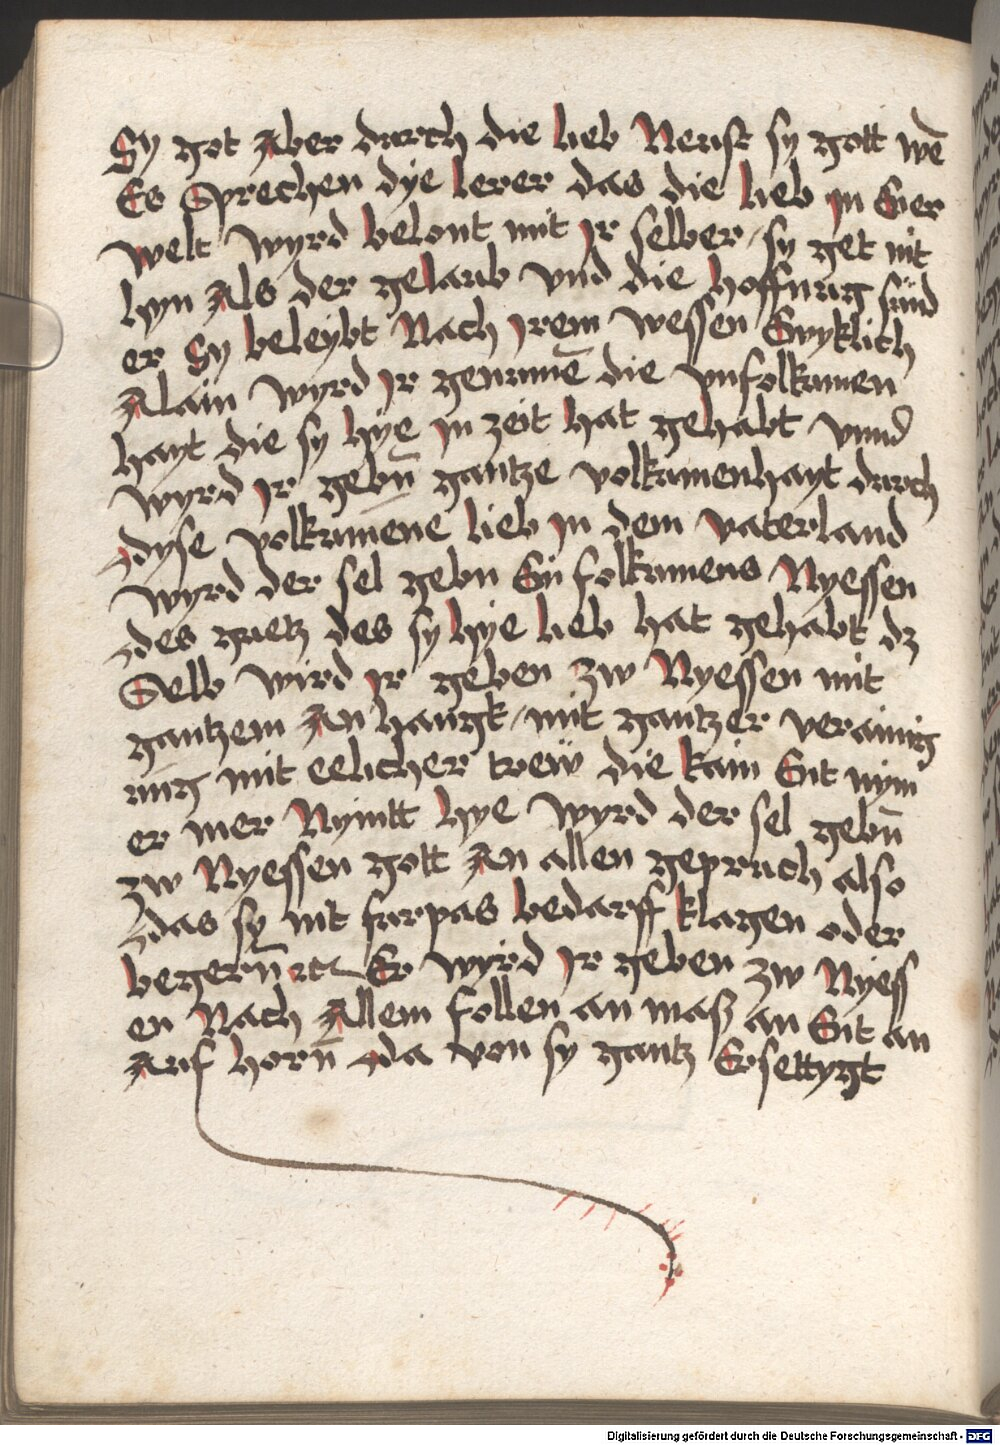 Sy got Aber durch die lieb Neust sy gott wē
Es Sprechen dÿe lerer das die lieb jn Ener
welt wyrd belont mit jr selber / sy get nit
hyn Als der gelaub vnd die hoffnug sünd
er Sy beleybt Nach jrem wessen Ewyklich
Alain wyrd jr genumē die vnfolkumen
hayt die sy hye jn zeit hat gehabt vnnd
wyrd jr gebn̄ gantze volkumenhayt durch
dyse volkumene lieb jn dem vaterland
wyrd der sel gebn Ein folkumens Nyessen
des guetz des sy hye lieb hat gehabt dz
Selb wird jr geben zw Nyessen mit
gantzem An hangk / mit gantzer veraining
ung mit eelicher trew die kain Ent nym
er mer Nymtt hye wyrd der sel gebn̄
zw Nyessen gott An allen gepruch also
das sy nit furpas bedarff klagen oder
begern̄ ⁊c Er wyrd jr geben zw Nyess
en Nach Allem follen an masz an Ent an
Auf horn̄ da von sy gantz Ersettygt
Digitalisierung gefördert durch die Deutsche Forschungsgemeinschaft - DFG